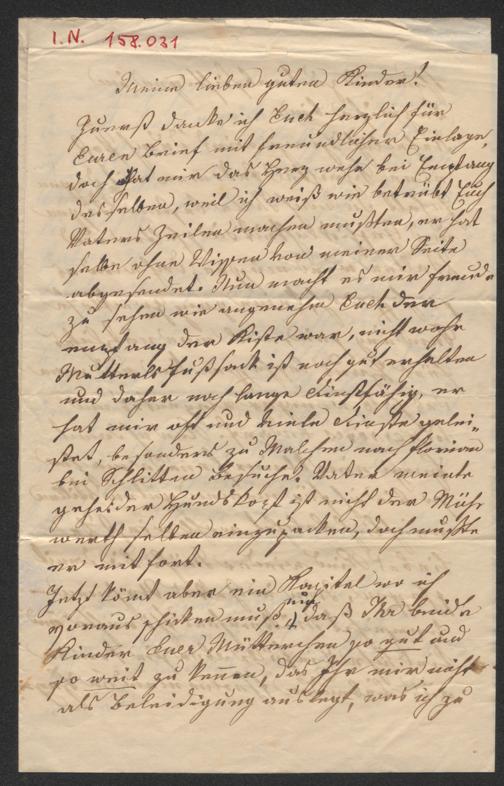 I.N. 158.031
Meine lieben guten Kinder!
Zuerst danke ich Euch herzlich für
Euren Brief mit freundlicher Einlage,
doch hat mir das Herz wehe bei Empfang
desselben, weil ich weiß wie betrübt Euch
Vaters Zeilen machen mußten, er hat
selbe ohne Wissen von meiner Seite
abgesendet. Nun macht es mir Freude
zu sehen wie angenehm Euch der
empfang der Kiste war, nicht wahr
Mutterls Fußsack ist noch gut erhalten
und daher noch lange dinstfähig, er
hat mir oft und viele Dinste gelei=
stet, besonders zu Malchen nach Florian
bei Schlitten Besuche. Vater meinte
geh der Hundskopf ist nicht der Mühe
werth selben einzupacken, doch mußte
er mit fort.
Jetzt kömt aber ein Kapitel wo ich
voraus schicken muß, daß Ihr beide
Kinder Euer Mütterchen so gut und
so weit zu kennen, das Ihr mir nicht
als Beleidigung auslegt, was ich zu